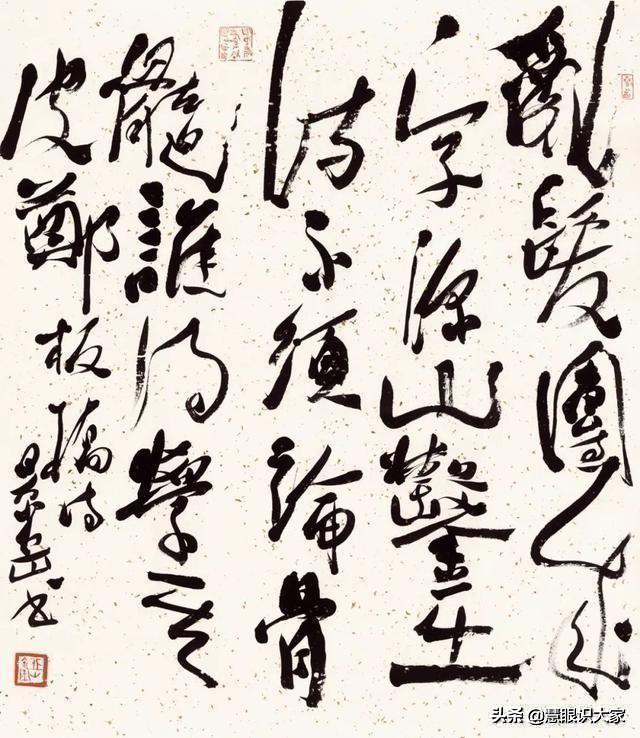 亂髮團成
字深山鑿出
詩不須論骨
髓誰得學其
皮鄭板橋詩
景岳书
头条 @慧眼识大家